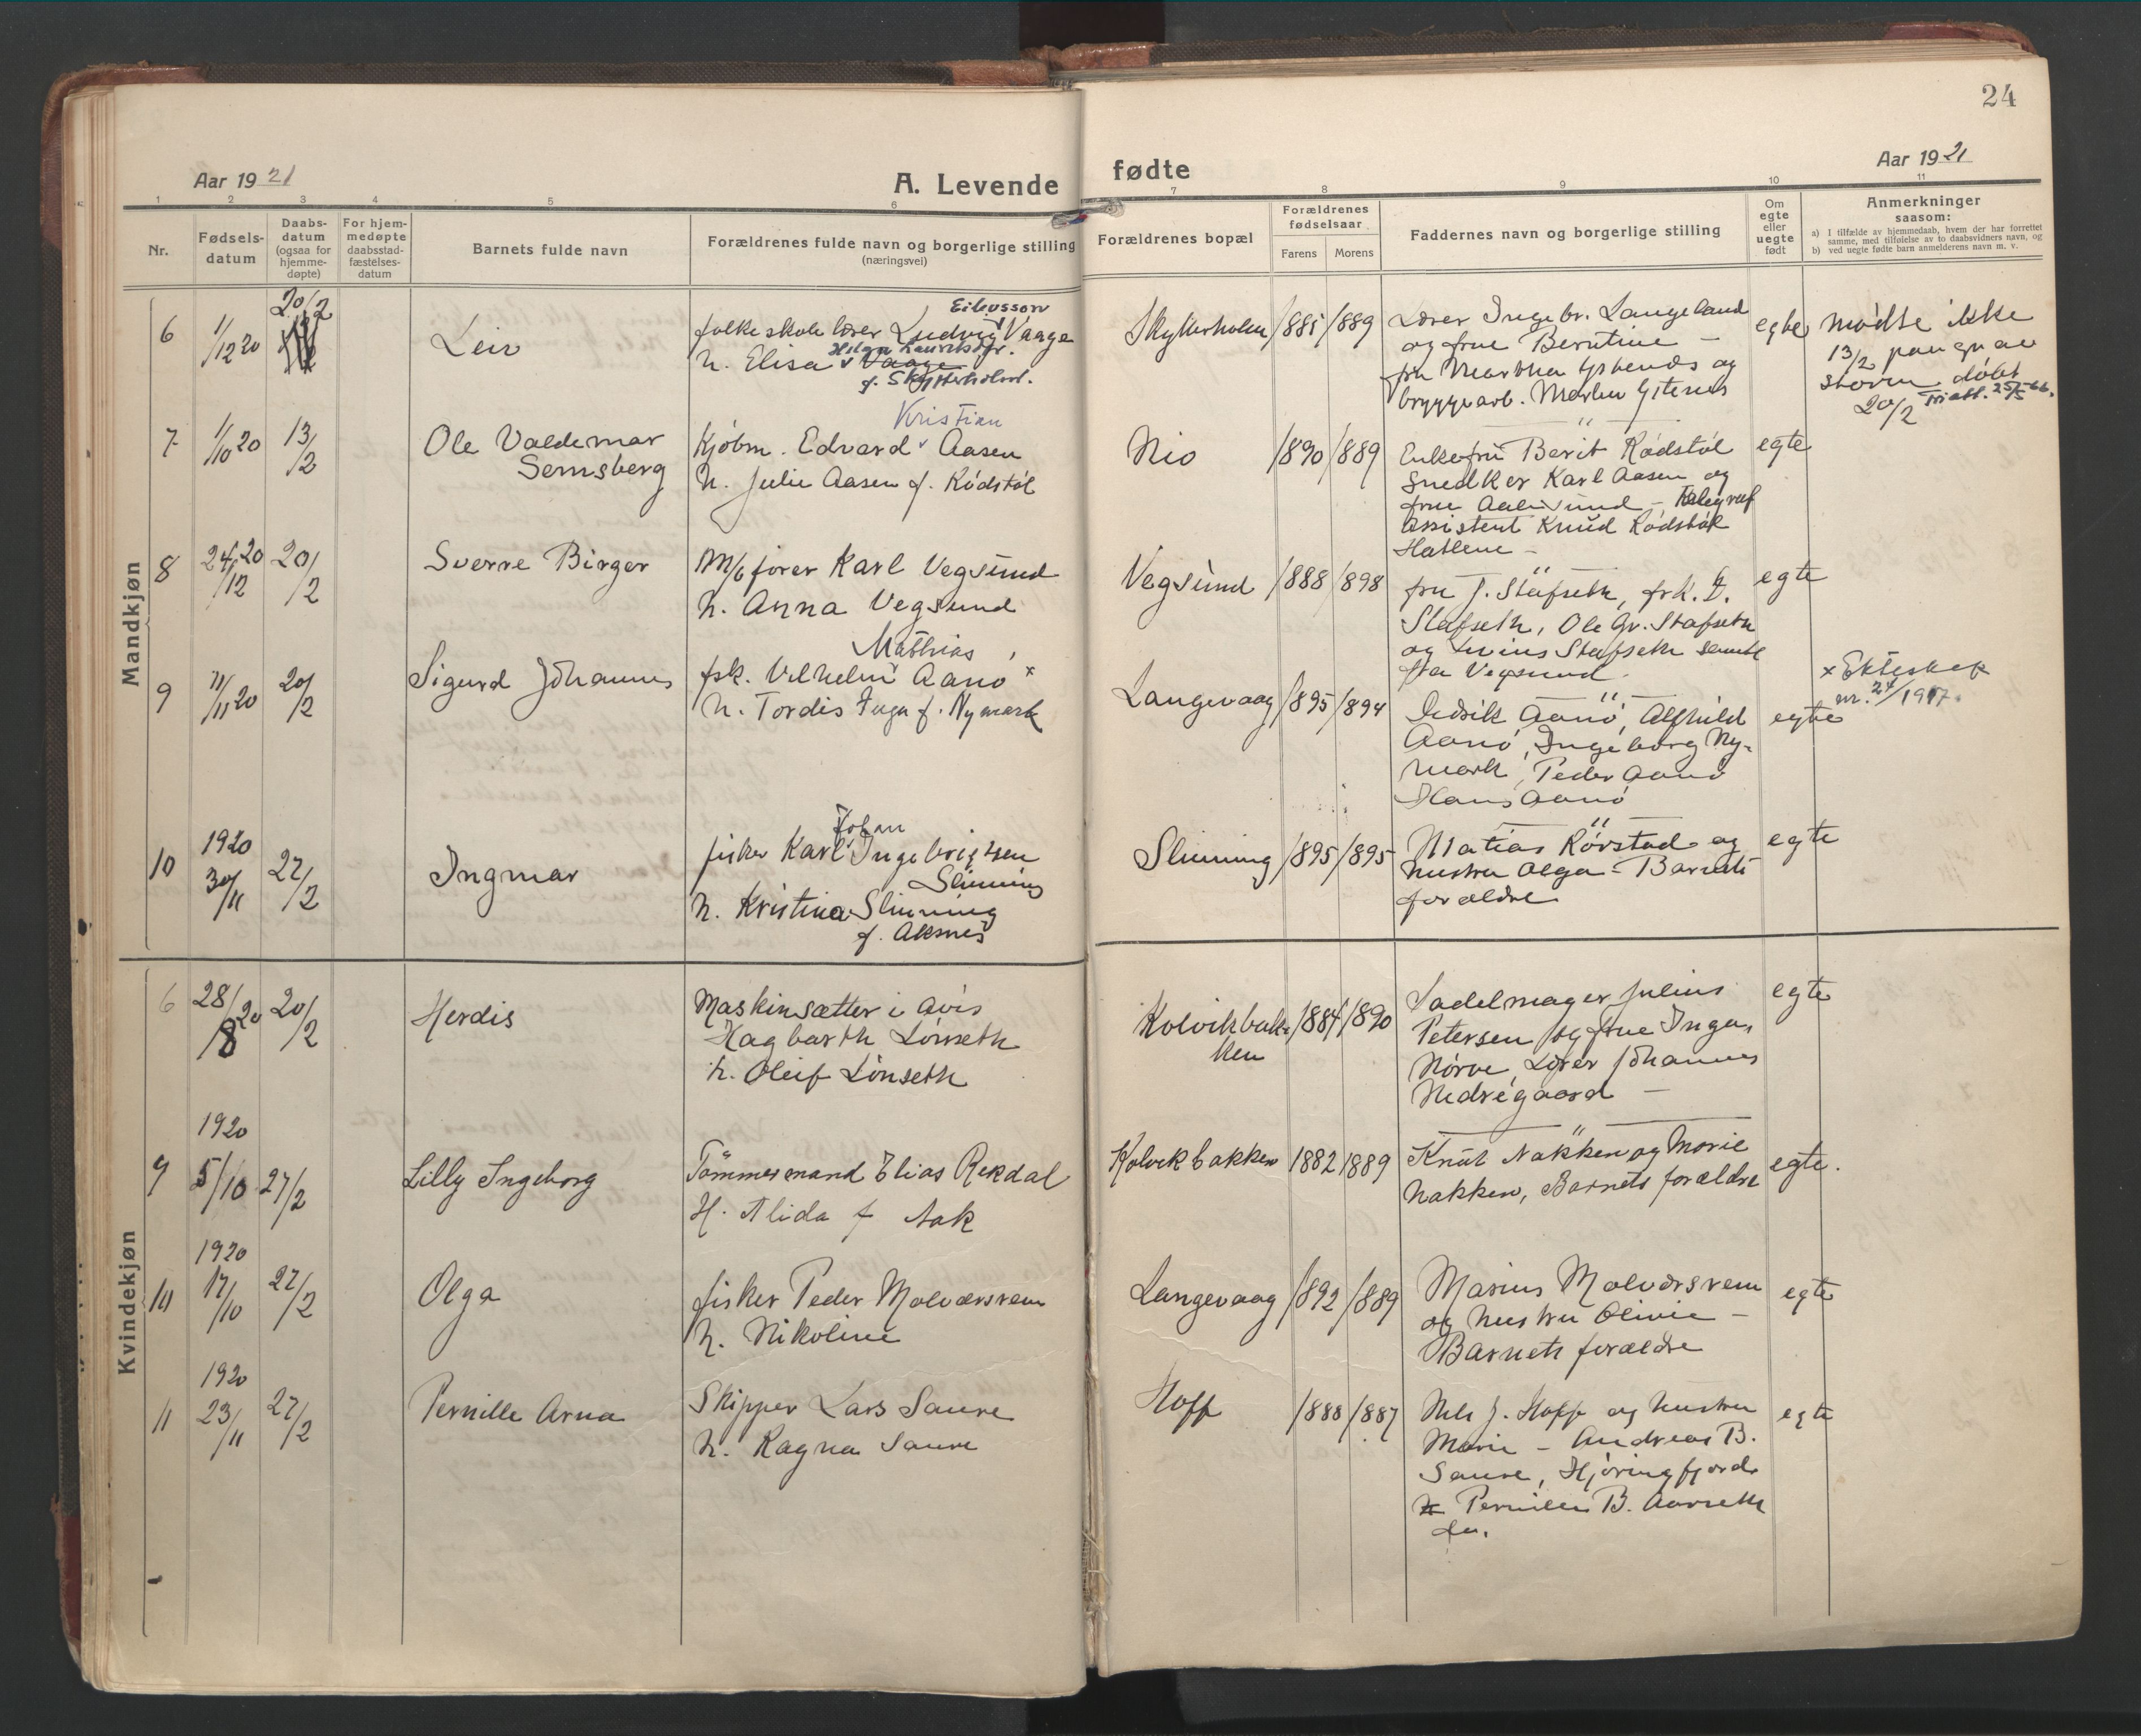 24
Aar 1921
A. Levende
fødte
Aar 1921
1 2 3 4 5 6 7 8 9 10 11
Nr.
Fødsels-
datum
Daabs-
datum
(ogsaa for
hjemme-
døpte)
For hjem-
medøpte
daabsstad-
fæstelses-
datum
Barnets fulde navn
Forældrenes fulde navn og borgerlige stilling
(næringsvei)
Forældrenes bopæl
Forældrenes
fødselsaar
Farens
Morens
Faddernes navn og borgerlige stilling
Om
egte
eller
uegte
født
Anmerkninger
saasom:
a) I tilfælde av hjemmedaab, hvem der har forrettet
samme, med tilføielse av to daabsvidners navn, og
b) ved uegte fødte barn anmelderens navn m. v.
Mandkjøn
6
1/12 20
20/2
Leiv
Eilevsson
folkeskole lærer Ludvig Vaage
h. Elisa Vaage
f. Skytterholm.
Skytterholm
1885
1889
Lærer Ingebr. Langeland
og frue Berntine –
egte
Mødte ikke
13/2 paa gr av
storm døbt
20/2
7
1/10 20
13/2
Ole Valdemar
Semsberg
Kristian
Kjøbm. Edvard Aasen
h. Julie Aasen f. Rødstøl
Nio
1890
1889
Enkefru Berit Rødstøl
Snedker Karl Aasen og
frue Aalesund – Telegraf
Assistent Knud Rødstøl
Hatlene –
egte
8
24/12 20
20/2
Sverre Birger
M/b fører Karl Vegsund
h. Anna Vegsund
Vegsund
1888
1898
fru J. Stafseth, frk. D.
Stafseth, Ole Gr. Stafseth
og Stafseth samtl
fra Vegsund.
egte
9
11/11 20
20/2
Sigurd Johannes
Mathias
fsk. Vilhelm Aanø x
h. Tordis Inga f. Nymark
Langevaag
1895
1894
Didrik Aanø, Alfhild
Aanø, Ingeborg Ny-
mark, Peder Aanø
Hans Aanø
egte
x Ekteskap
nr. 24/1917.
10
1920
30/11
27/2
Ingmar
Johan
fisker Karl Ingebrigtsen
Slinning
h. Kristina Slinning
f. Aksnes
Slinning
1895
1895
Matias Rørstad og
hustru Olga – Barnets
forældre
egte
Kvindekjøn
6
28/8 20
20/2
Herdis
Maskinsætter i avis
Hagbarth Lønseth
h. Oleif Lønseth
Kolvikbak-
ken
1884
1890
Sadelmager Julius
Petersen og frue Inga,
Nørve, Lærer Johannes
Nedregaard –
egte
9
1920
5/10
27/2
Lilly Ingeborg
Tömmermand Elias Rekdal
H. Alida f Aak
Kolvikbakken
1882
1889
Knut Nakken og Marie
Nakken, Barnets forældre
egte.
10
1920
17/10
27/2
Olga
fisker Peder Molværsrem
h. Nikoline
Langevaag
1892
1889
Marius Molværsrem
og hustru Olivie –
Barnets forældre
egte
11
1920
23/11
27/2
Pernille Arna
Skipper Lars Saure
h. Ragna Saure
Hoff
1888
1887
Nils J. Hoff og hustru
Marie – Andreas B.
Saure, Hjøringfjord
Pernille B. Aarseth
do.
egte